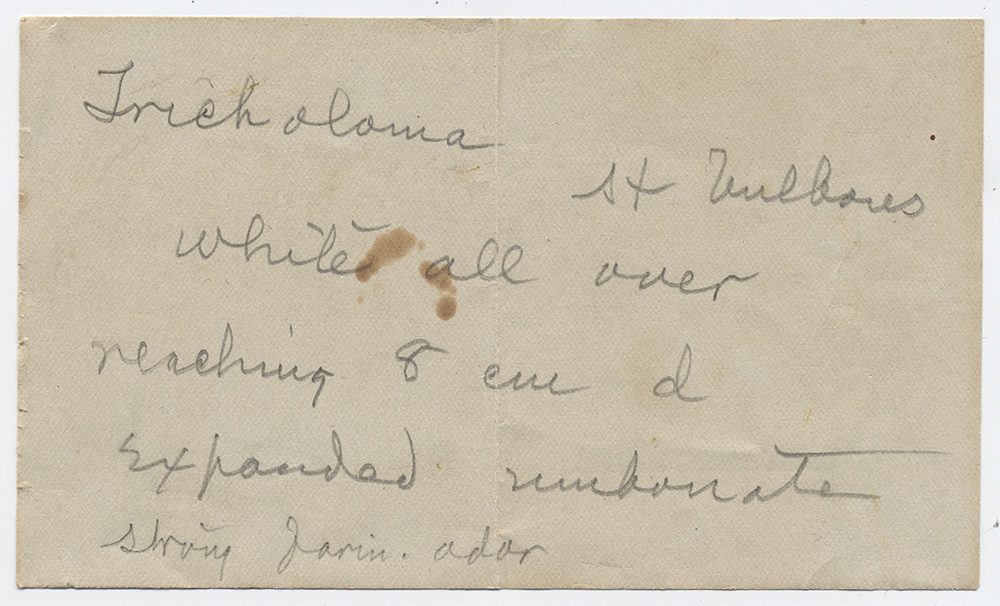 Tricholoma
st
white all over
reaching 8 cm d
expanded umbonate
strong farin. odor